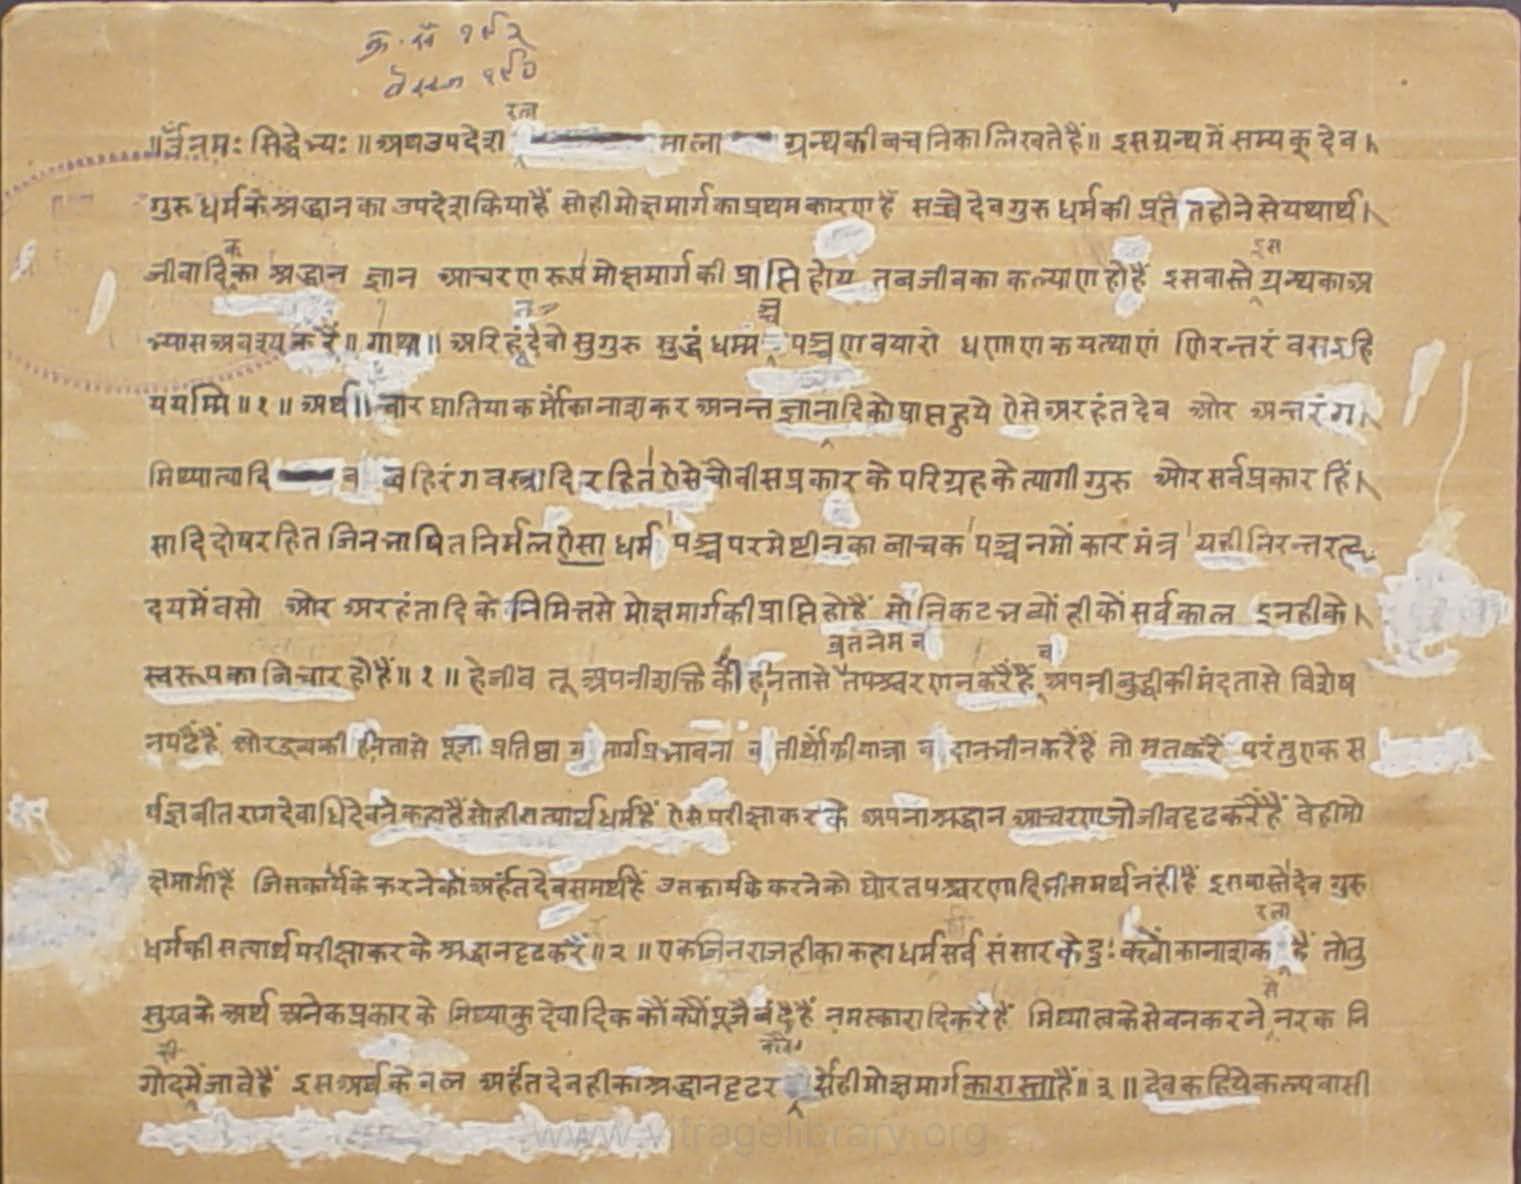 क्र. सं १९२
वेस्टन १९०
रत्न
॥ ॐ नमः सिद्धेभ्यः ॥ अथ उपदेश माला ग्रन्थ की वचनिका लिखते हैं ॥ इस ग्रन्थ में सम्यक् देव
गुरु धर्म के श्रद्धान का उपदेश किया हैं सो ही मोक्षमार्ग का प्रथम कारण हैं सच्चे देव गुरु धर्म की प्रतीत होने से यथार्थ
क इस
जीवादि का श्रद्धान ज्ञान आचरण रूप मोक्षमार्ग की प्राप्ति होय तब जीव का कल्याण हो हैं इस वास्ते ग्रन्थ का अ
त च्च
भ्यास अवश्य करैं ॥ गाथा ॥ अरिहं देवो सुगुरु सुद्धं धम्मं पञ्च णवयारो धण्णाण कयत्थाणं णिरन्तरं वसइ हि
ययम्मि ॥ १ ॥ अर्थ ॥ चार घातिया कर्मों का नाश कर अनन्त ज्ञानादि को प्राप्त हुये ऐसे अरहंत देव ओर अन्तरंग
मिथ्यात्वादि व बहिरंग वस्त्रादि रहित ऐसे चौवीस प्रकार के परिग्रह के त्यागी गुरु ओर सर्व प्रकार हिं
सादि दोष रहित जिन भाषित निर्मल ऐसा धर्म पञ्च परमेष्टीन का वाचक पञ्च नमों कार मंत्र यही निरन्तर हृ
दय में वसो ओर अरहंतादि के निमित्त से मोक्षमार्ग की प्राप्ति हो हैं सो निकट भव्यों ही कों सर्व काल इन ही के
व्रत नेम व व
स्वरूप का विचार हो हैं ॥ १ ॥ हे जीव तू अपनी शक्ति की हीनता से तपश्चरण न करै हैं अपनी बुद्धी की मंदता से विशेष
न पढैं हैं ओर द्रव्य की हीनता से पूजा प्रतिष्ठा मार्ग प्रभावना व तीर्थों की यात्रा व दान भी न करै हैं तो मत करै परंतु एक स
र्वज्ञ वीतराग देवाधिदेव ने कहा हैं सो ही सत्यार्थ धर्म हैं ऐसे परीक्षा कर के अपना श्रद्धान आचरण जो जीव दृढ करै हैं वे ही मो
क्षमार्गी हैं जिस कार्य के करने कों अर्हत देव समर्थ हैं उस कार्य के करने को घोर तपश्चरणादि भी समर्थ नंही हैं इस वास्ते देव गुरु
धर्म की सत्यार्थ परीक्षा कर के श्रद्धान दृढ करैं ॥ २ ॥ एक जिनराज ही का कहा धर्म सर्व संसार के दुःखों का नाशक हैं तो तु
सुख के अर्थ अनेक प्रकार के मिथ्या कु देवादिक कों क्यों पूजै बंदै हैं नमस्कारादि करै हैं मिथ्यात्व के सेवन करने नरक नि
से
गोद में जावे हैं इस अर्थ केवल अर्हत देव ही का श्रद्धान दृढ र ये ही मोक्षमार्ग का रास्ता हैं ॥ ३ ॥ देव कहिये कल्पवासी
www.vitragelibrary.org